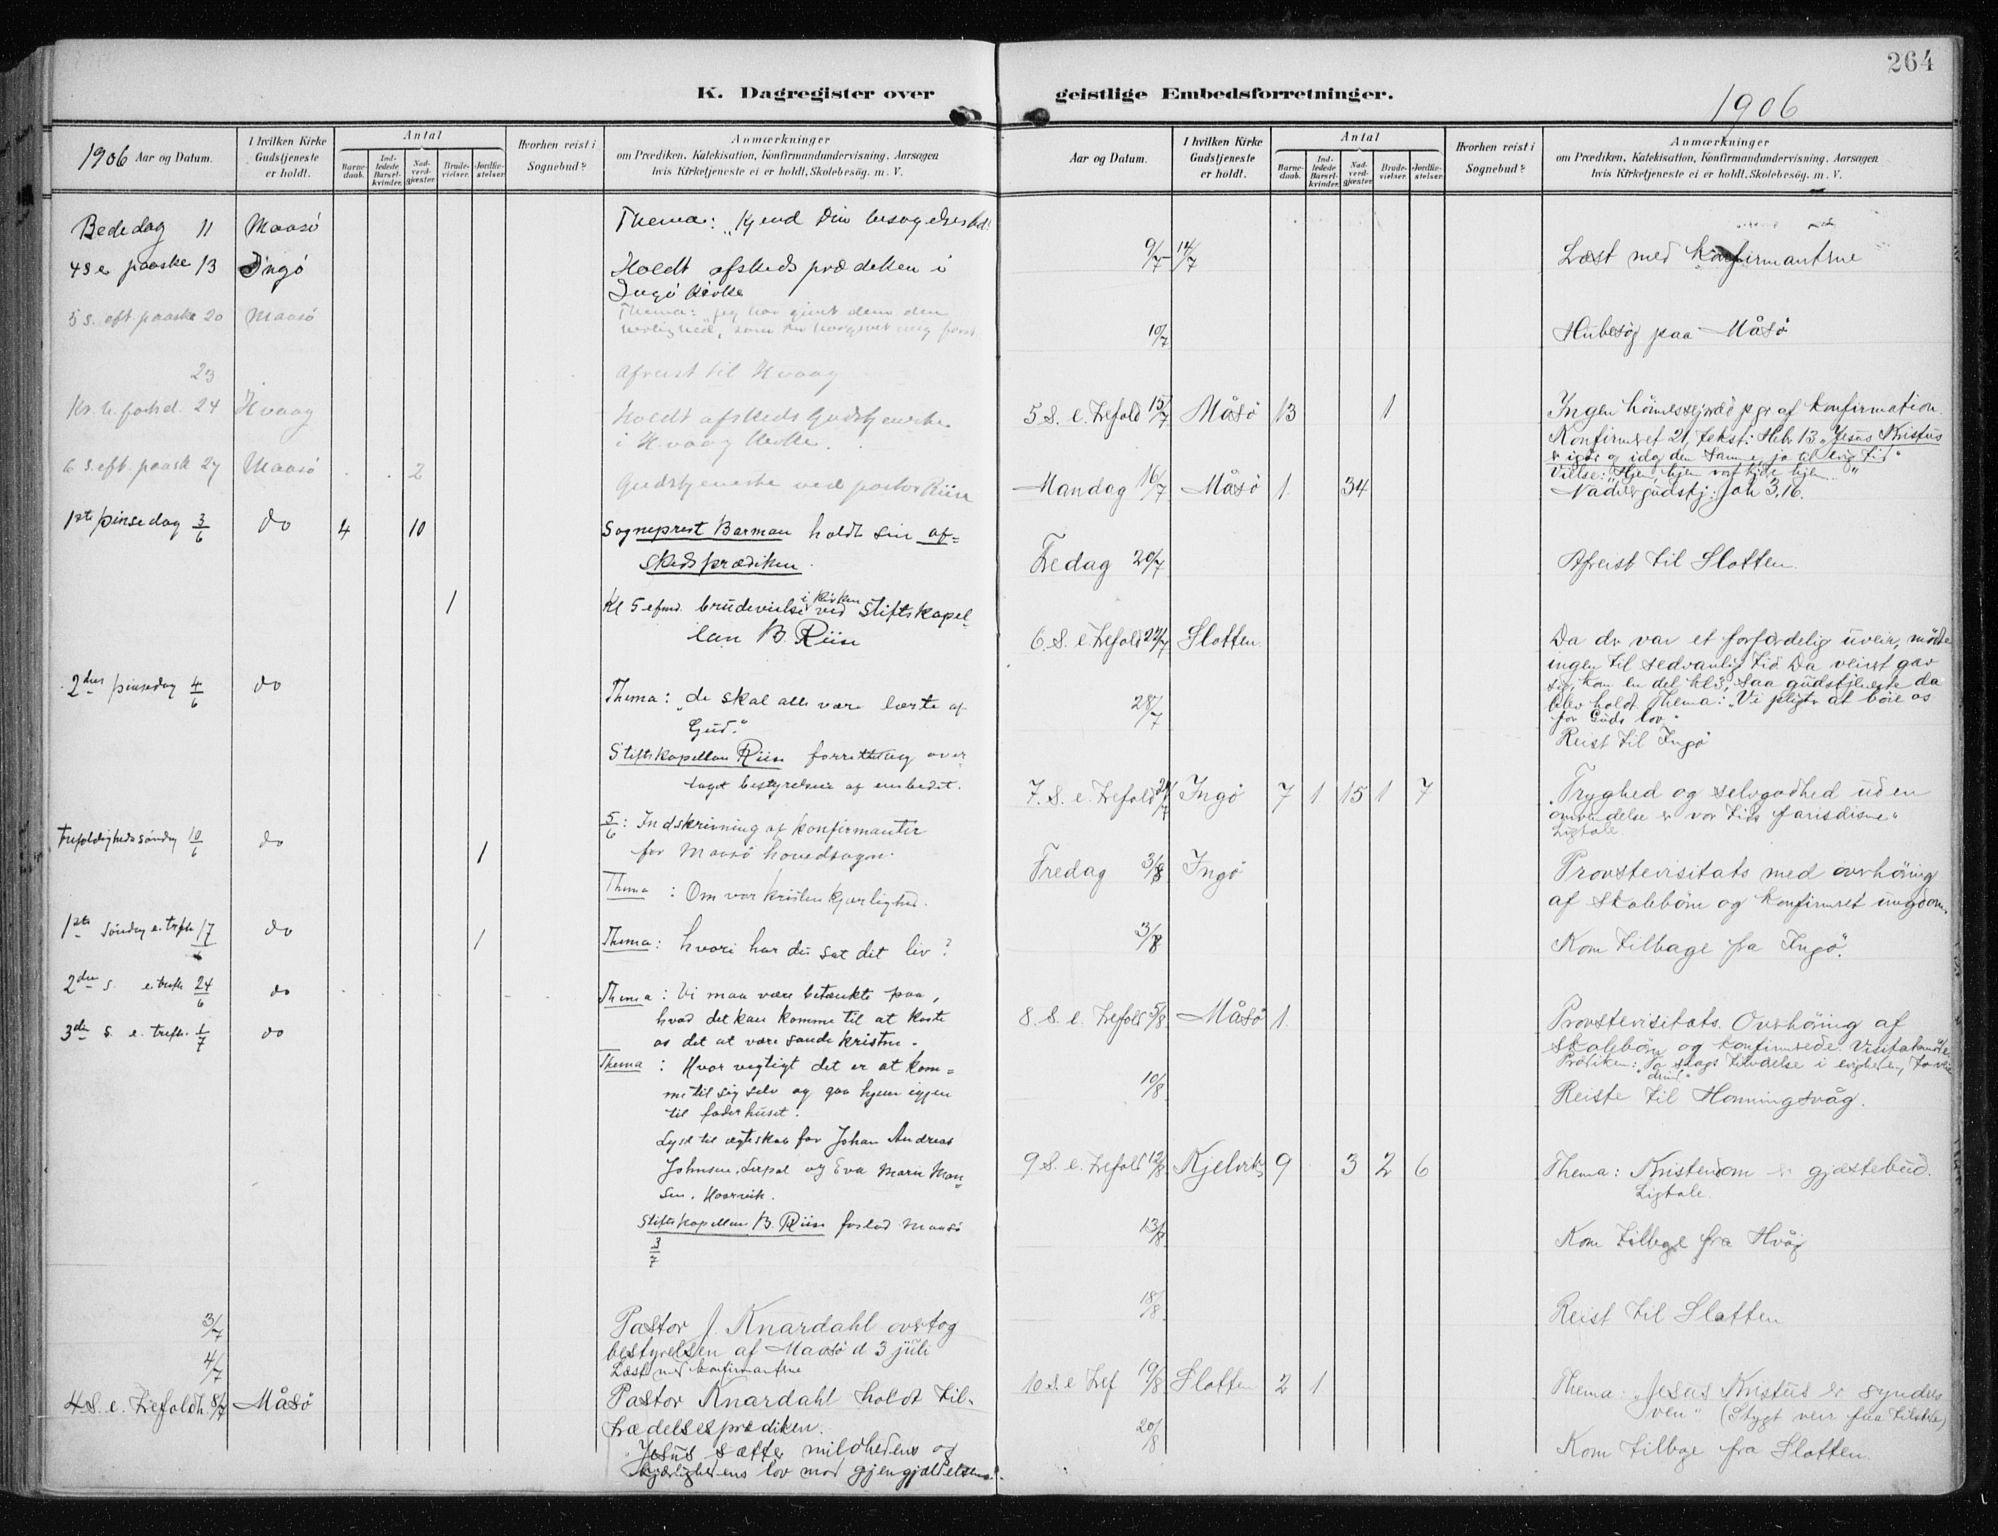 264
K. Dagregister over geistlige Embedsforretninger.
1906
1906 Aar og Datum.
I hvilken Kirke Gudstjeneste er holdt.
Antal
Barne-daab.
Ind-ledede Barsel-kvinder.
Nad-verd-gjæster.
Brude-vielser.
Jordfæ-stelser.
Hvorhen reist i Sognebud?
Anmærkninger
om Prædiken, Katekisation, Konfirmandundervisning, Aarsagen
hvis Kirketjeneste ei er holdt, Skolebesøg, m. V.
Bededag 11 Maasø Thema: "Kjend Din besøgelsestid"
4 S e paaske 13 Ingø Holdt afskedsprædeken i
Ingø Kirke
5 s. eft. paaske 20 Maasø Thema: "Jeg har givet dem den
herlighed, som du har givet mig først
23 Afreist til Hvaag
Kr. h. farts d. 24 Hvaag Holdt afskeds Gudstjeneste
i Hvaag Kirke.
6 s. eft. paask 27 Maasø 2 Gudstjeneste ved pastor Riise
1ste pinsedag 3/6 do 4 10 Sogneprest Barman holdt sin af=
skedsprædiken.
1 Kl 5 efmd. brudevielse i kirken ved Stiftskapel-
lan B. Riise
2den pinsedag 4/6 do Thema: "de skal alle være lærte af
Gud."
Stiftskapellan Riise forretning over
taget bestyrelsen af embedet.
5/6: Indskrivning af konfirmanter
for Maasø hovedsogn.
Trefoldighedssøndag 10/6 do 1
Thema: Om vor kristenkjærlighed.
1ste søndag e. trefh. 17/6 do 1 Thema: hvori har du sat det liv?
2den s. e trefh 24/6 do Thema: Vi maa være betænkte paa,
hvad det kan komme til at koste
os det at være sande kristne.
3die s. e. trefh. 1/7 do Thema: Hvor vigtigt det er at kom=
me til sig selv og gaa hjem igjen
til faderhuset.
Lyst til ægteskab for Johan Andreas
Johnsen, og Eva Marie Han-
sen. Havøvik.
Stiftskapellan B. Riise forlod Maasø
3/7
3/7 Pastor J. Knardahl overtog
bestyrelsen af Maasø d 3 juli
4/7 Læst med konfirmantne
4 S. e. Trefoldh. 8/7 Måsø Pastor Knardahl holdt til-
trædelsesprædiken.
"Jesus sætter mildhedens og
kjærlighedens lov mod gjengjældelsens"
Aar og Datum.
I hvilken Kirke Gudstjeneste er holdt.
Antal
Barne-daab.
Ind-ledede Barsel-kvinder.
Nad-verd-gjæster.
Brude-vielser.
Jordfæ-stelser.
Hvorhen reist i Sognebud?
Anmærkninger
om Prædiken, Katekisation, Konfirmandundervisning, Aarsagen
hvis Kirketjeneste ei er holdt, Skolebesøg, m. V.
9/7 - 14/7 Læst med konfirmantne
10/7 Husbesøg paa Måsø
5 S. e. Trefold 15/7 Måsø 13 1 Ingen p gr af konfirmation.
Konfirmeret 21, tekst: Hebr 13 "Jesus Kristus
er igår og idag den samme, ja til evig tid"
Vielse: "Hjem, hjem hjem"
Mandag 16/7 Måsø 1. 34 Nadvergudstj: Joh 3,16.
Fredag 20/7 Afreist til Slotten.
6. S. e. Trefold 22/7 Slotten. Da dr var et forfærdelig uveir, mødte
ingen til sedvanlig tid. Da veiret gav
sig, kom en del kl 3, saa gudstjeneste da
blev holdt. Thema: "Vi pligtr at bøie os
for Guds lov"
28/7 Reist til Ingø
7. S. e. Trefold 29/7 Ingø 7 1 15 1 7 "Tryghed og selvgodhed uden
omvendelse er vor tids farisdisme"
Ligtale
Fredag 3/8 Ingø Provstevisitats med overhøring
af skolebørn og konfirmeret ungdom.
3/8 Kom tilbage fra Ingø.
8. S. e. Trefold 5/8 Måsø 1. Provstevisitats. Overhøring af
skolebørn og konfirmerede. Visitatsmøde.
Prædiken: "To slags tilværelse i evigheden,
10/8 Reiste til Honningsvåg.
9 S. e. Trefold 12/8 Kjelvik 9 3 2 6 Thema: Kristendom er gjæstebud.
Ligtale.
13/8 Kom tilbage fra Hvåg
18/8 Reist til Slotten
10 s. e Tref 19/8 Slotten 2 1 Thema "Jesus Kristus er syndres
ven" (Stygt veir faa tilstede)
20/8 Kom tilbage fra Slotten.